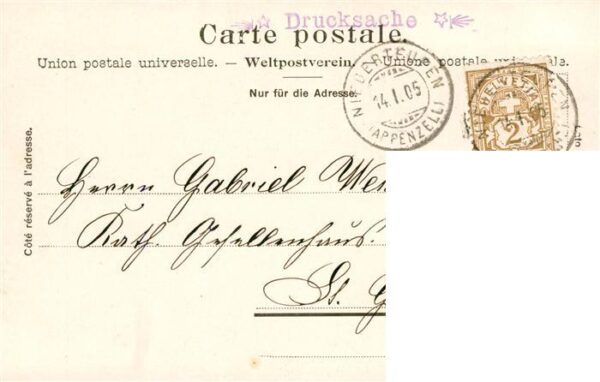 Drucksache
Carte postale.
Union postale universelle. — Weltpostverein. — Unione postale universale.
Nur für die Adresse.
NIEDERTEUFEN
14.I.05
(APPENZELL)
HELVETIA
2
Côté réservé à l'adresse.
Herrn Gabriel
Kath. Gesellenhaus.
St. G